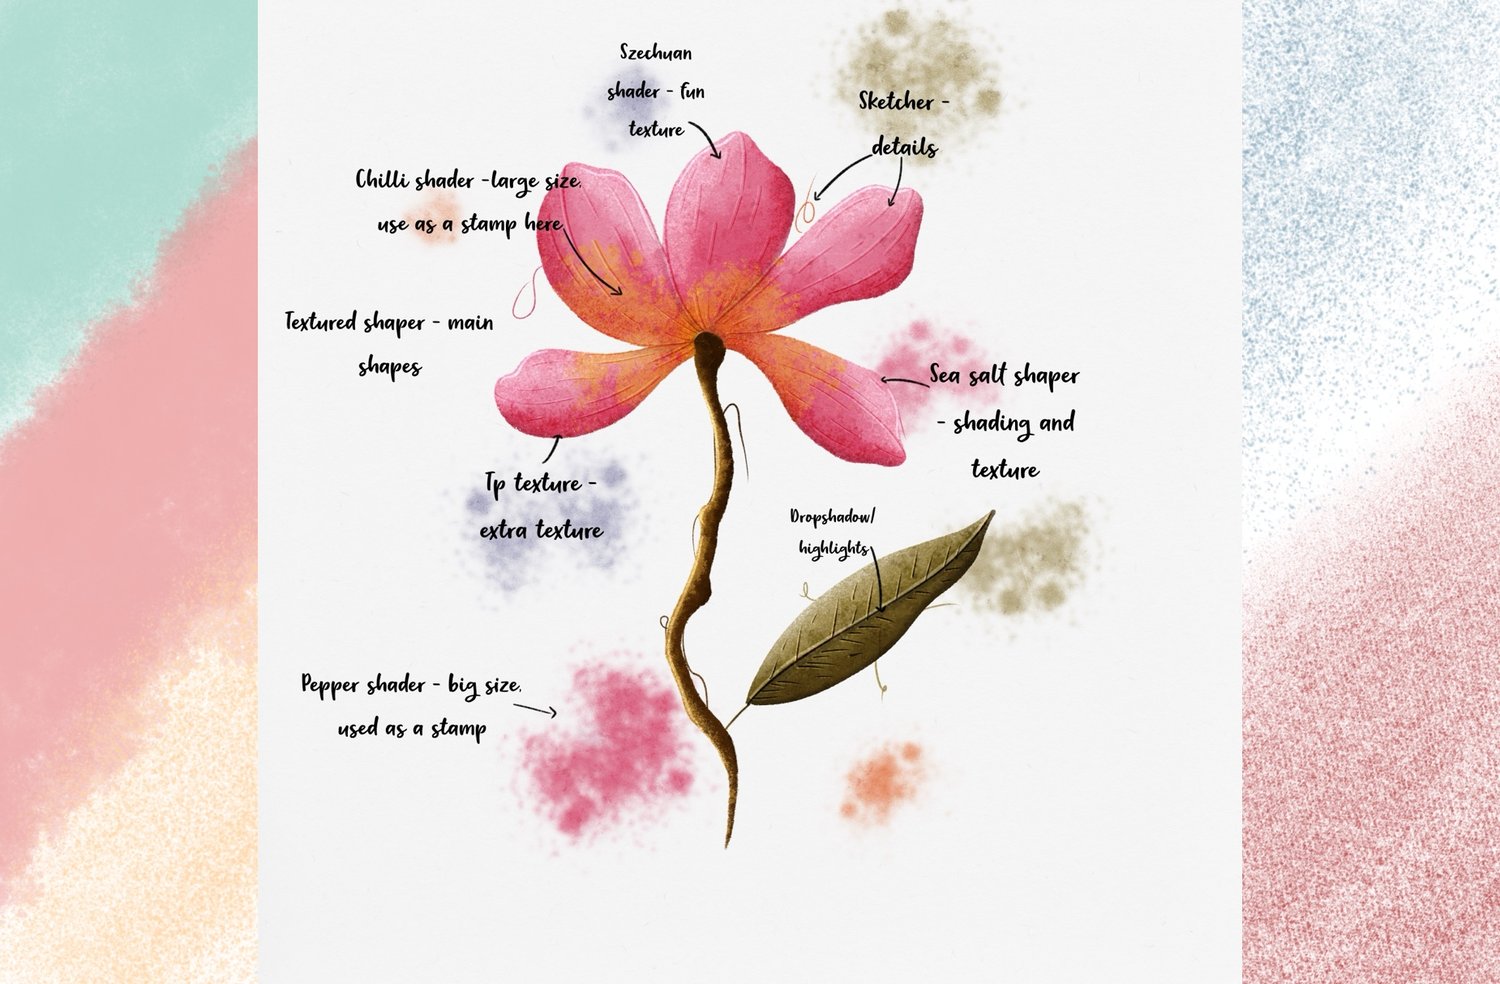 Szechuan
shader - fun
texture
Sketcher -
details
Chilli shader -large size.
use as a stamp here
Textured shaper - main
shapes
Sea salt shaper
- shading and
texture
Tp texture -
extra texture
Dropshadow/
highlights
Pepper shader - big size.
used as a stamp